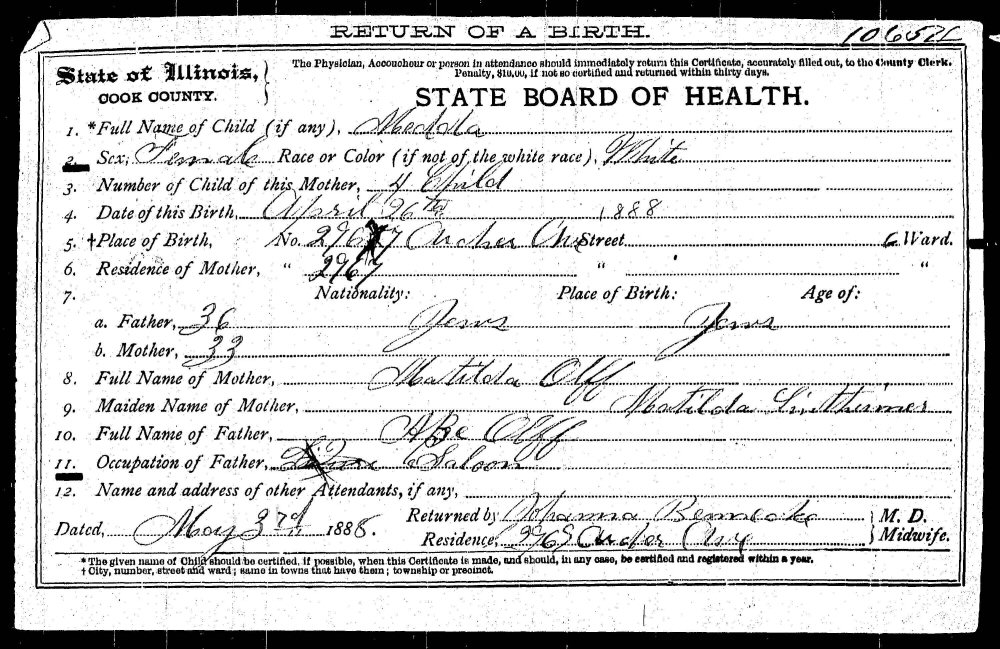 RETURN OF A BIRTH.
State of Illinois,
COOK COUNTY.
The Physician, Accouchour or person in attendance should immediately return this Certificate, accurately filled out, to the County Clerk.
Penalty, $10.00, if not so certified and returned within thirty days.
STATE BOARD OF HEALTH.
1. *Full Name of Child (if any), Medda
2. Sex, Female Race or Color (if not of the white race), White
3. Number of Child of this Mother, 4 Child
4. Date of this Birth, April 26th 1888
5. †Place of Birth, No. Archer Ave Street 6 Ward.
6. Residence of Mother, " 2967 " "
7. Nationality: Place of Birth: Age of:
a. Father, 36 Jews Jews
b. Mother, 33
8. Full Name of Mother, Matilda Olff
9. Maiden Name of Mother, Matilda Lindheimer
10. Full Name of Father, ABe Olff
11. Occupation of Father, Saloon
12. Name and address of other Attendants, if any,
Dated, May 3rd 1888. Returned by Johanna M. D.
Residence, Archer Ave Midwife.
* The given name of Child should be certified, if possible, when this Certificate is made, and should, in any case, be certified and registered within a year.
† City, number, street and ward; same in towns that have them; township or precinct.